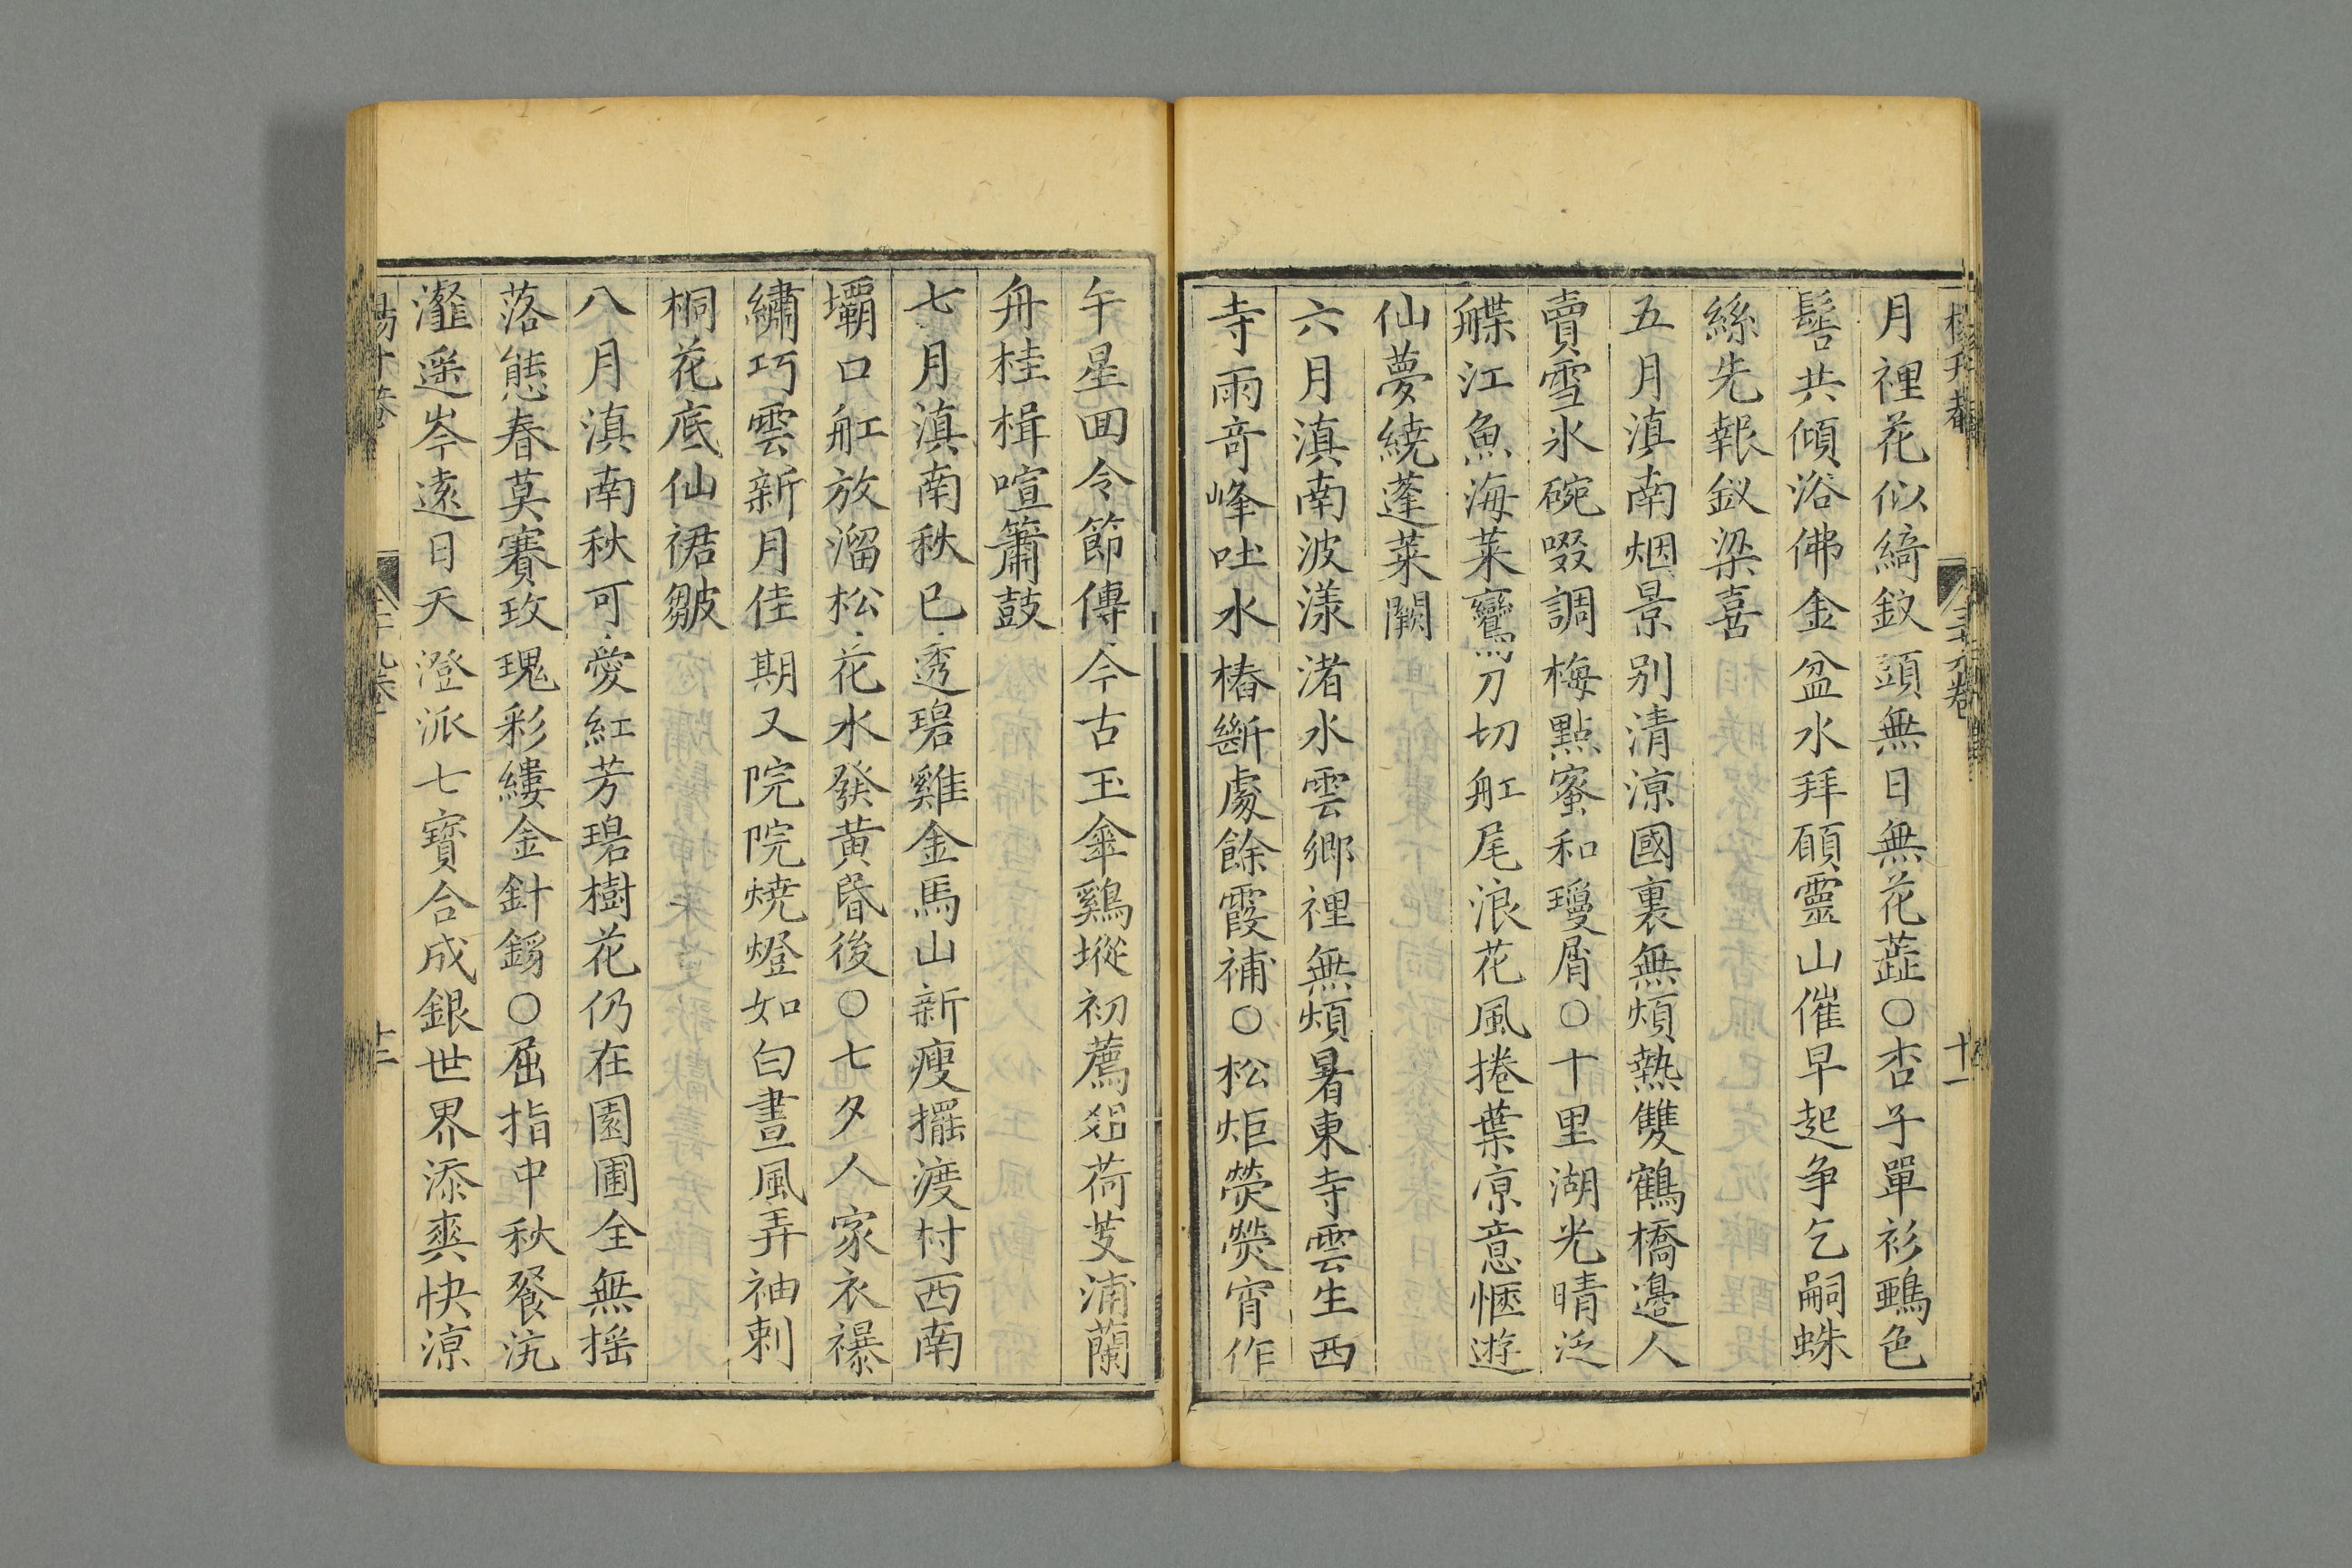 月裡花似綺釵頭無日無花蘂〇杏子單衫鵶色
髻共傾浴佛金盆水拜願靈山催早起爭乞嗣蛛
絲先報釵梁喜
五月滇南烟景别清涼國裏無煩熱雙鶴橋邊人
賣雪氷碗啜調梅點蜜和瓊屑〇十里湖光晴泛
艓江魚海菜鸞刀切舡尾浪花風捲葉凉意愜遊
仙夢繞蓬萊闕
六月滇南波漾渚水雲鄉裡無煩暑東寺雲生西
寺雨竒峰吐水樁斷處餘霞補〇松炬熒熒宵作
午星囬令節傳今古玉傘鷄㙡初薦爼荷芰浦蘭
舟桂楫喧簫鼓
七月滇南秋已透碧雞金馬山新瘦擺渡村西南
壩口舡放溜松花水發黄昏後〇七夕人家衣襮
繡巧雲新月佳期又院院燒燈如白晝風弄袖刺
桐花底仙裙皺
八月滇南秋可愛紅芳碧樹花仍在園圃全無摇
落態春莫賽玫瑰彩縷金針鎊〇屈指中秋餐沆
瀣遥岑遠日天澄派七寶合成銀世界添爽快涼